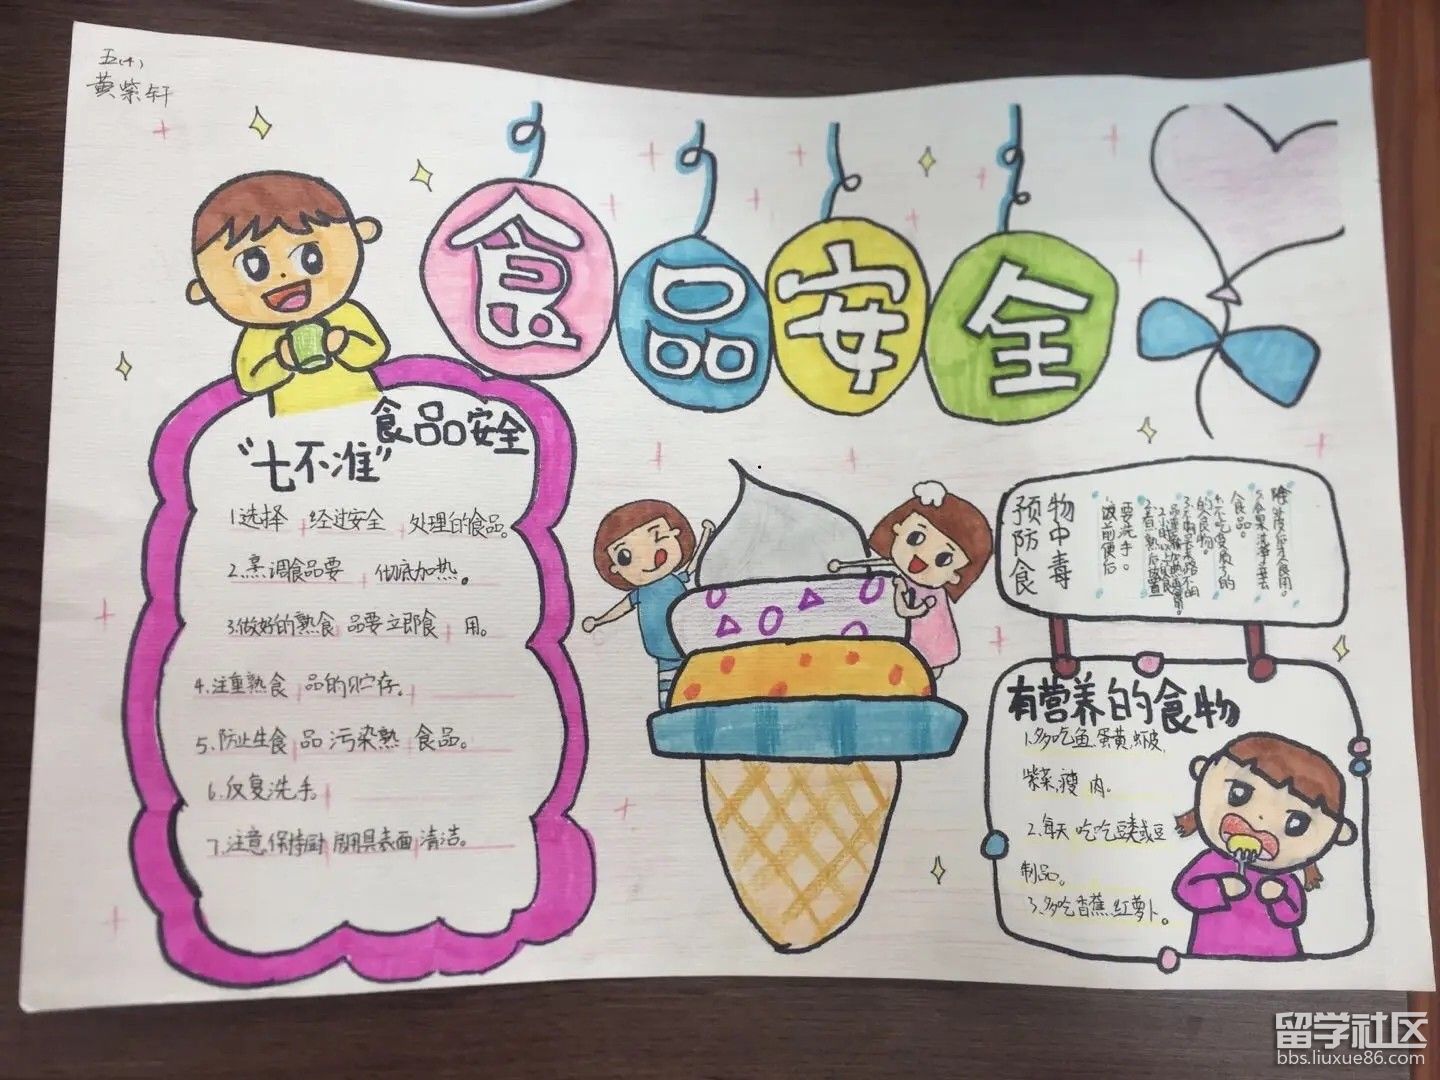 五(4)
黄紫轩
食品安全
食品安全
“七不准”
1.选择 经过安全 处理的食品。
2.烹调食品要 彻底加热。
3.做好的熟食 品要立即食 用。
4.注重熟食 品的贮存。
5.防止生食 品污染熟 食品。
6.反复洗手。
7.注意保持厨 房用具表面 清洁。
预防食
物中毒
饭前便后
要洗手。
4.不吃变质了的
食品。
有营养的食物
1.多吃鱼.蛋黄.虾皮,
紫菜,瘦 肉。
2.每天 吃吃豆类或豆
制品。
3.多吃香蕉.红萝卜。
留学社区
bbs.liuxue86.com